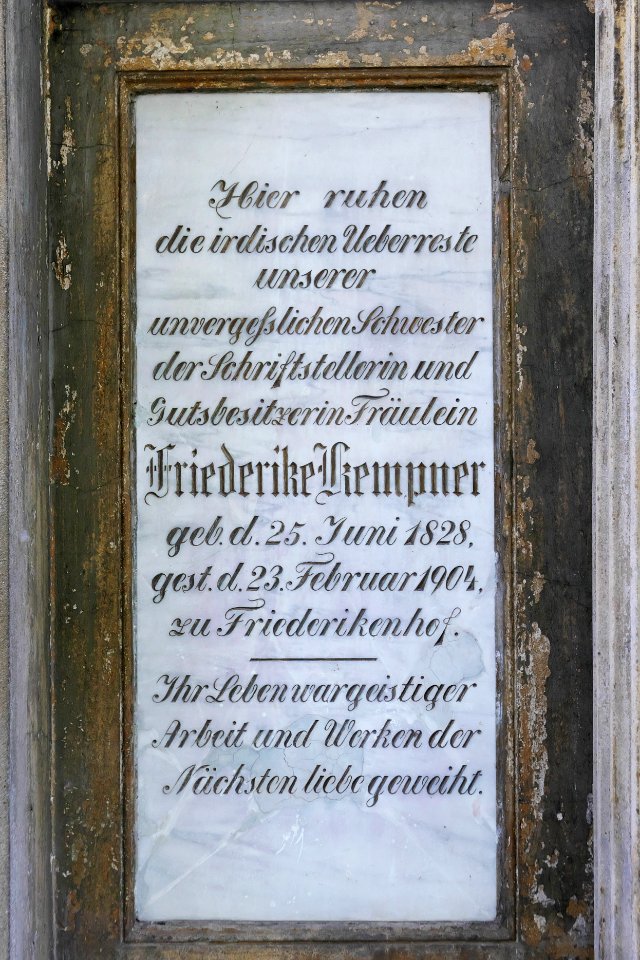 Hier ruhen
die irdischen Ueberreste
unserer
unvergeßlichen Schwester
der Schriftstellerin und
Gutsbesitzerin Fräulein
Friederike Kempner
geb. d. 25. Juni 1828,
gest. d. 23. Februar 1904,
zu Friederikenhof.
Ihr Leben war geistiger
Arbeit und Werken der
Nächsten liebe geweiht.